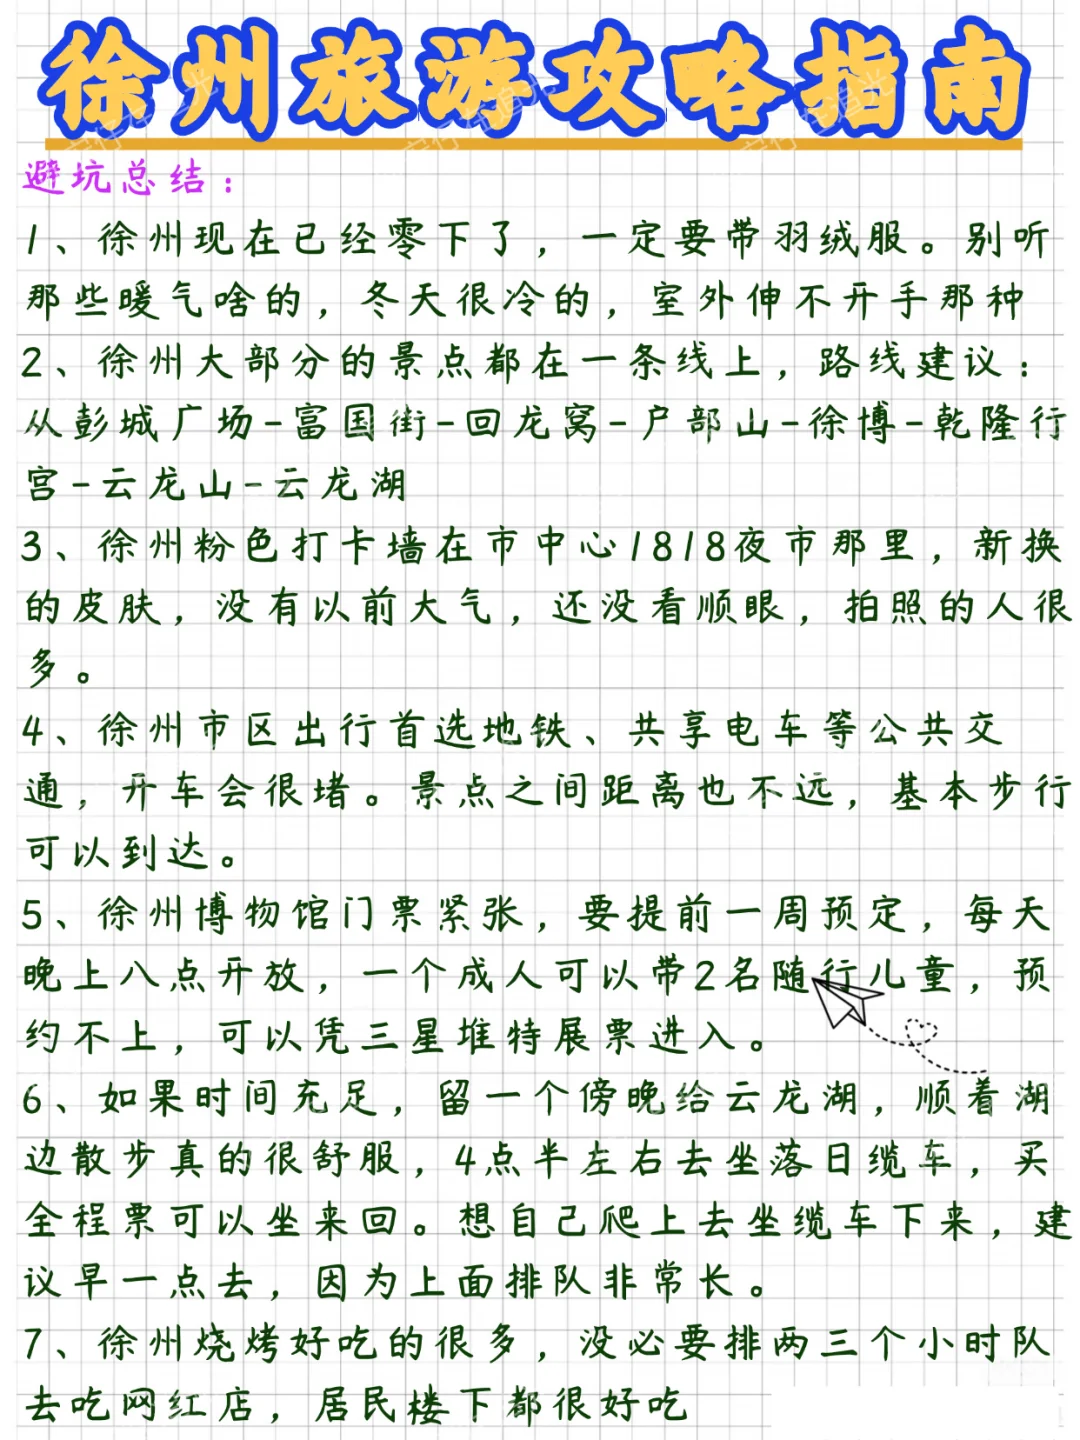 徐州旅游攻略指南
避坑总结：
1、徐州现在已经零下了，一定要带羽绒服。别听
那些暖气啥的，冬天很冷的，室外伸不开手那种
2、徐州大部分的景点都在一条线上，路线建议：
从彭城广场-富国街-回龙窝-户部山-徐博-乾隆行
宫-云龙山-云龙湖
3、徐州粉色打卡墙在市中心1818夜市那里，新换
的皮肤，没有以前大气，还没看顺眼，拍照的人很
多。
4、徐州市区出行首选地铁、共享电车等公共交
通，开车会很堵。景点之间距离也不远，基本步行
可以到达。
5、徐州博物馆门票紧张，要提前一周预定，每天
晚上八点开放，一个成人可以带2名随行儿童，预
约不上，可以凭三星堆特展票进入。
6、如果时间充足，留一个傍晚给云龙湖，顺着湖
边散步真的很舒服，4点半左右去坐落日缆车，买
全程票可以坐来回。想自己爬上去坐缆车下来，建
议早一点去，因为上面排队非常长。
7、徐州烧烤好吃的很多，没必要排两三个小时队
去吃网红店，居民楼下都很好吃